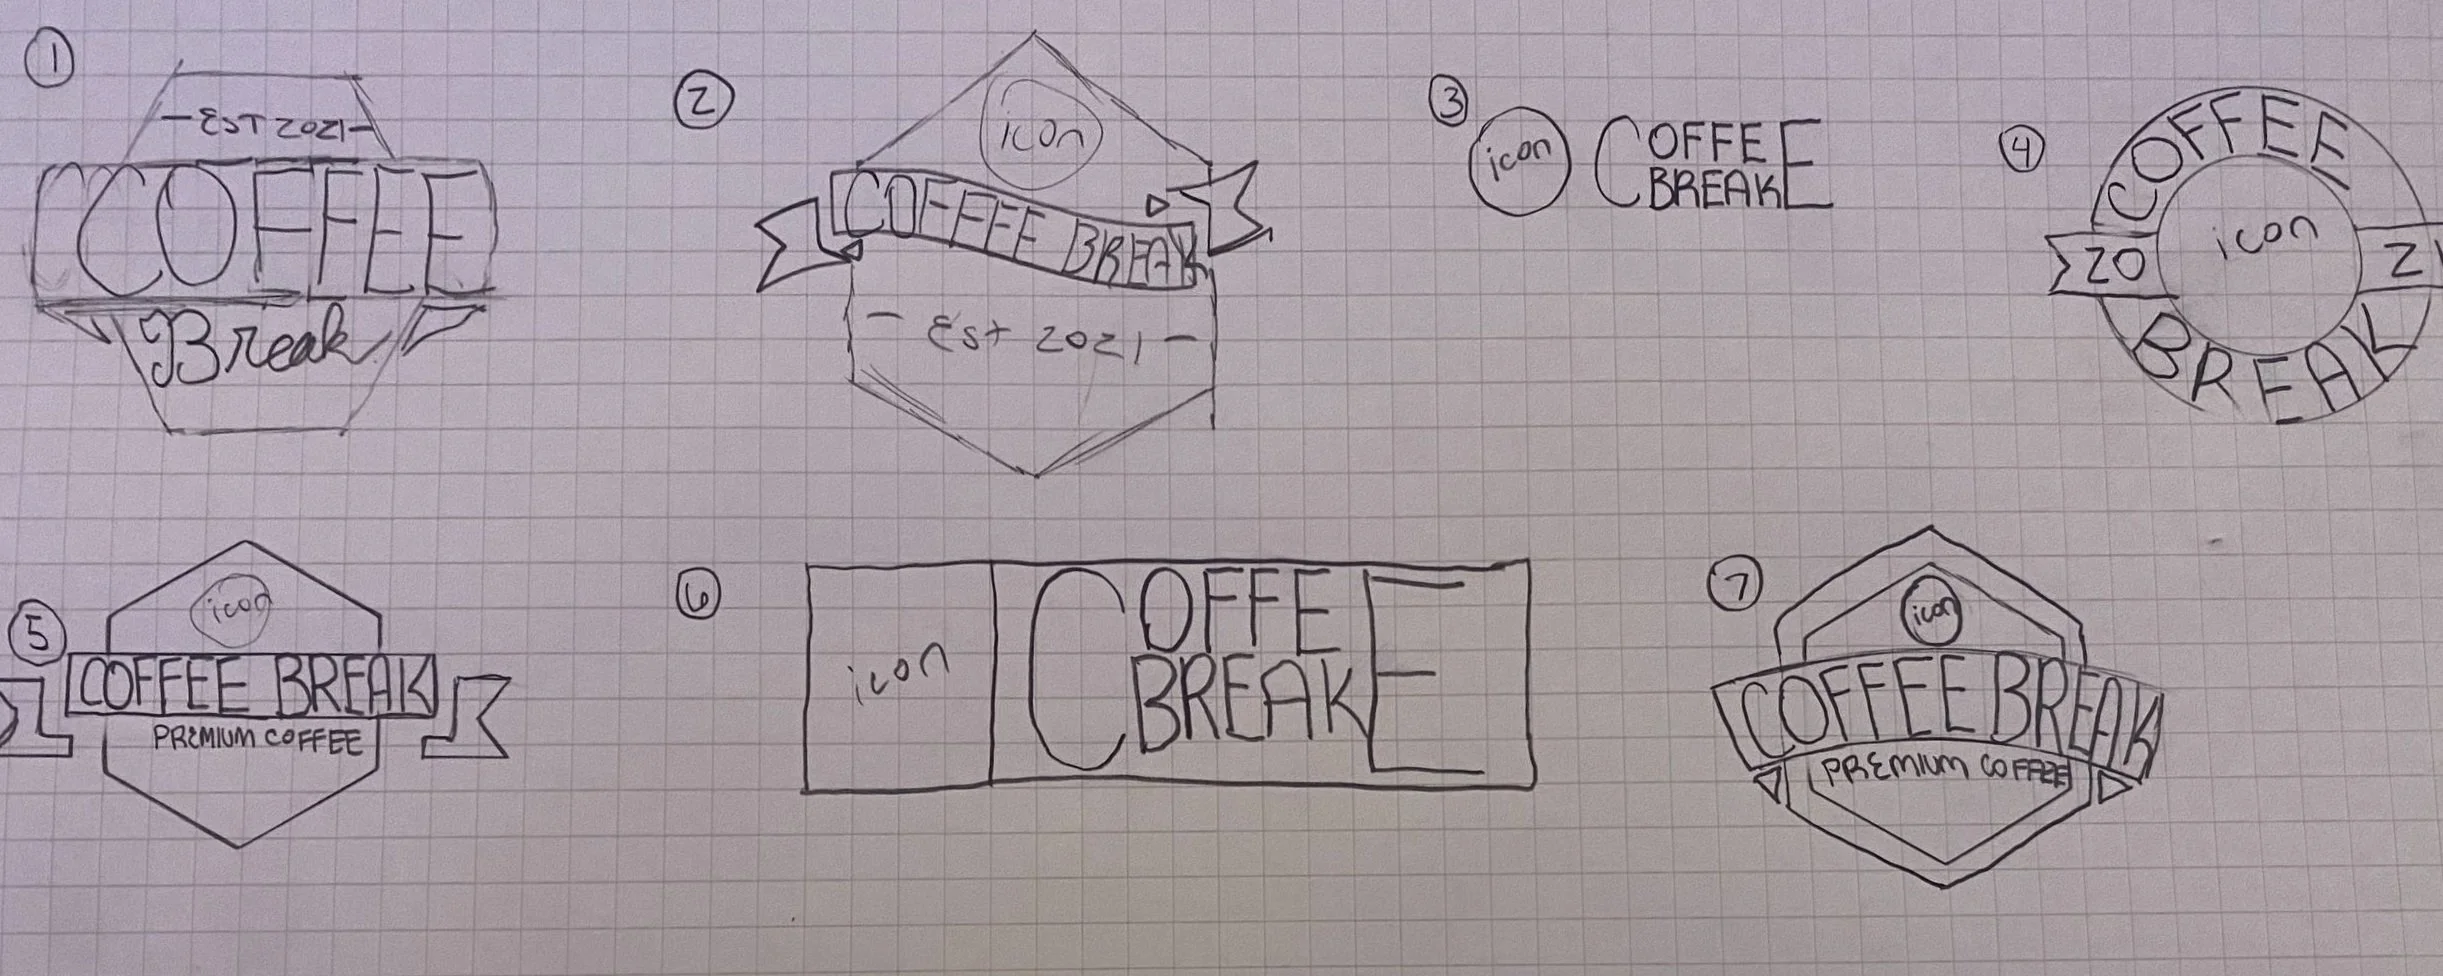 1
- EST 2021 -
COFFEE
Break
2
icon
COFFEE BREAK
- Est 2021 -
3
icon
COFFEE
BREAK
4
COFFEE
20 icon 21
BREAK
5
icon
COFFEE BREAK
PREMIUM COFFEE
6
icon
COFFEE
BREAK
7
icon
COFFEE BREAK
PREMIUM COFFEE